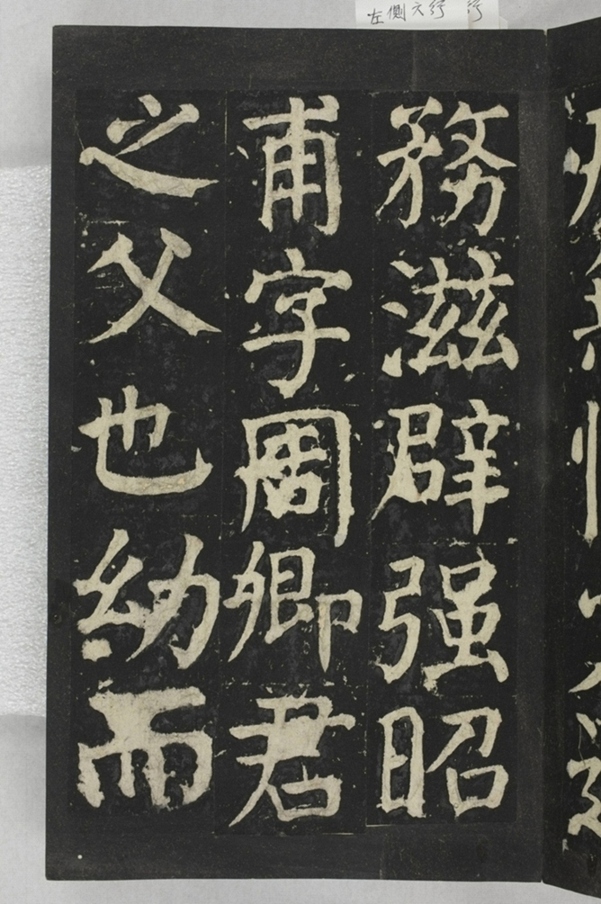 左側六行
務滋辟强昭
甫字周卿君
之父也幼而